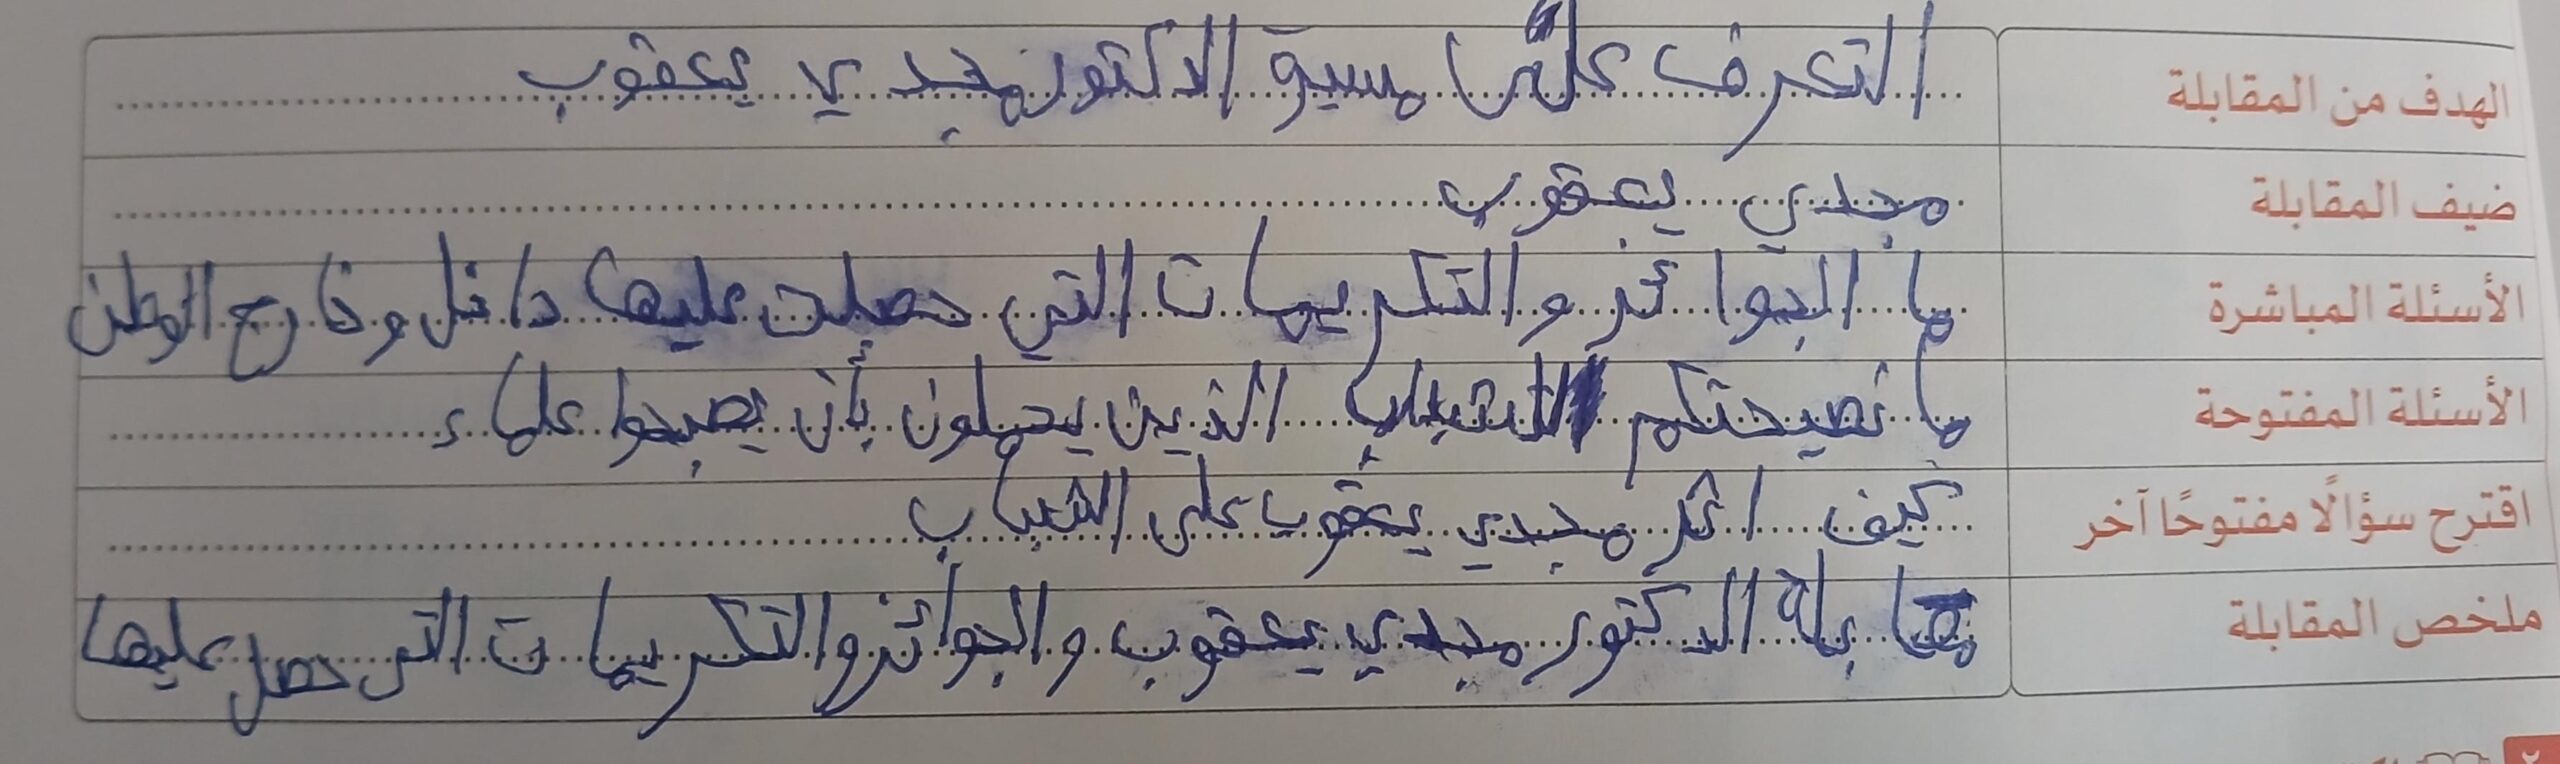 الهدف من المقابلة التعرف على مسيرة الدكتور مجدي يعقوب
ضيف المقابلة مجدي يعقوب
الأسئلة المباشرة ما الجوائز والتكريمات التي حصلت عليها داخل وخارج الوطن
الأسئلة المفتوحة ما نصيحتكم للشباب الذين يحملون بأن يصبحوا علماء
اقترح سؤالًا مفتوحًا آخر كيف اثر مجدي يعقوب على الشباب
ملخص المقابلة مقابلة الدكتور مجدي يعقوب والجوائز والتكريمات التي حصل عليها